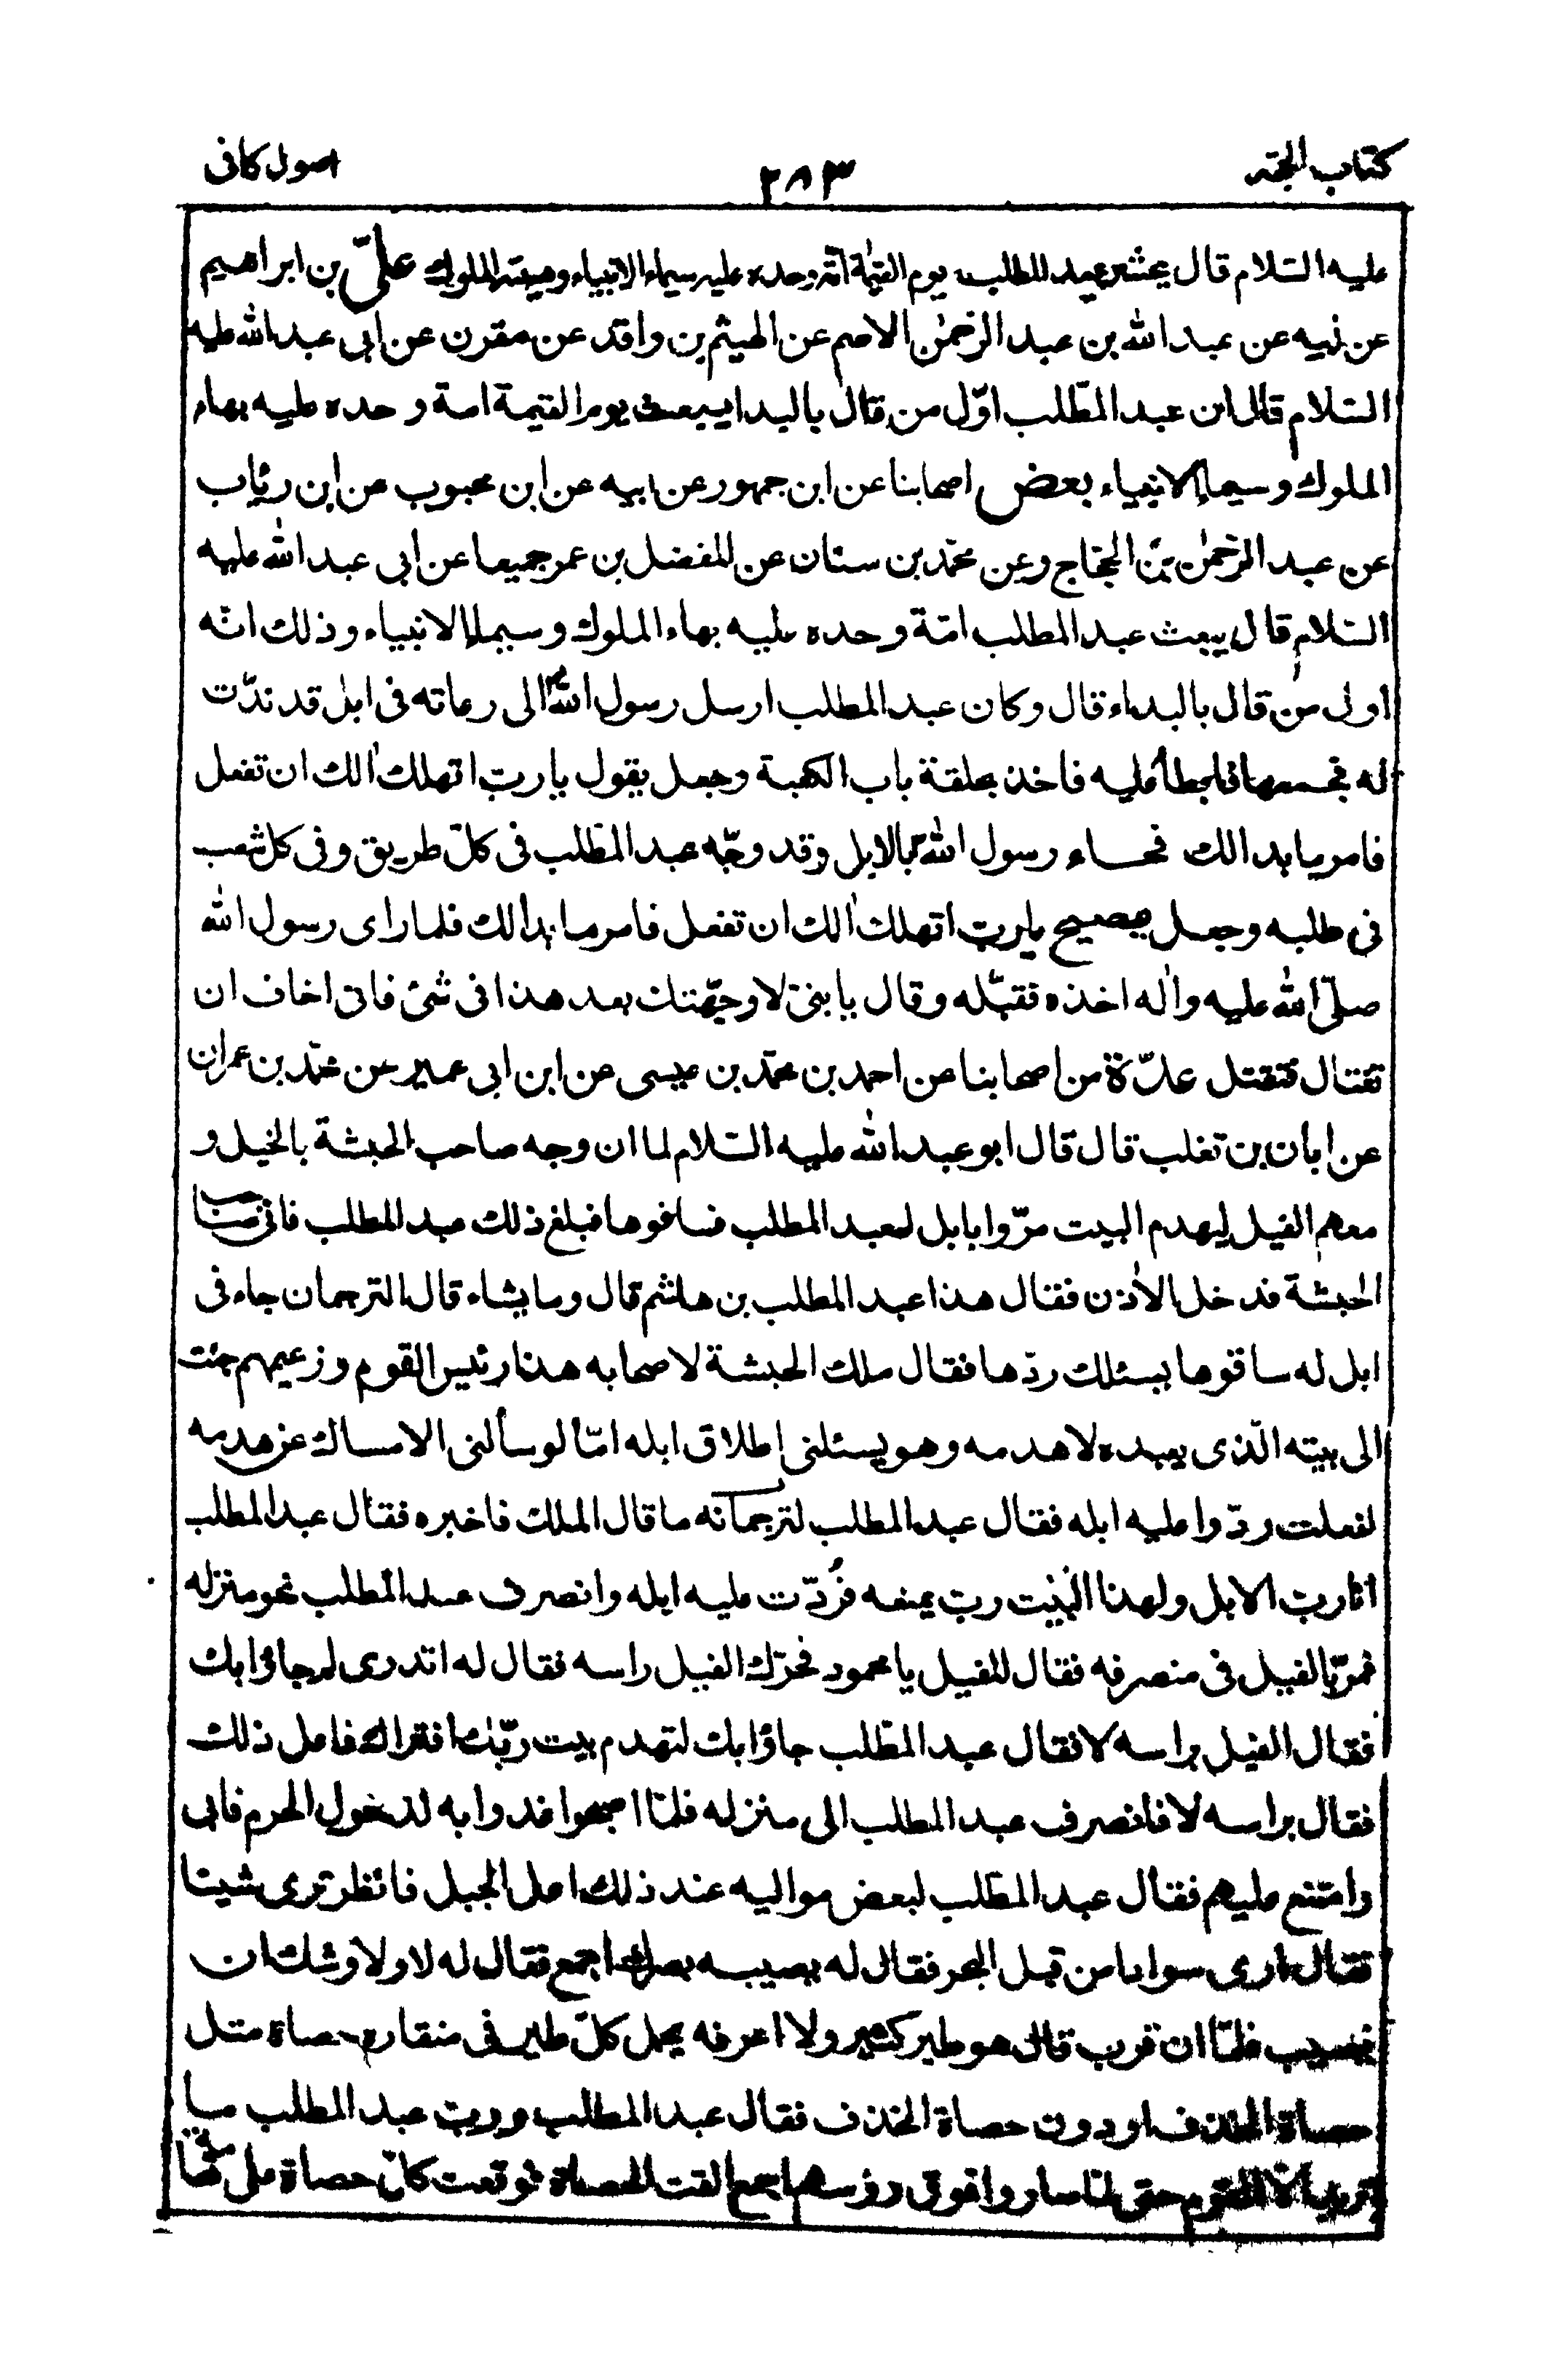 كتاب الحجة
٢٨٣
اصول كافى
عليه السّلام قال يحشر عبد المطلب يوم القيٰمة امّة وحده عليه سيماء الانبياء وهيبة الملوك علىّ بن ابراهيم
عن ابيه عن عبد الله بن عبد الرّحمٰن الاصم عن الهيثم بن واقد عن مقرن عن ابى عبد الله عليه
السّلام قال ان عبد المطّلب اوّل من قال بالبدا يبعث يوم القيمة امة وحده عليه بهاء
الملوك وسيماء الانبياء بعض اصحابنا عن ابن جمهور عن ابيه عن ابن محبوب عن ابن رئاب
عن عبد الرّحمٰن بن الحجّاج وعن محمّد بن سنان عن المفضل بن عمر جميعا عن ابى عبد الله عليه
السّلام قال يبعث عبد المطلب امّة وحده عليه بهاء الملوك وسيماء الانبياء وذلك انّه
اول من قال بالبداء قال وكان عبد المطلب ارسل رسول الله الى رعاته فى ابل قد ندّت
له فجمعها فابطأ عليه فاخذ بحلقة باب الكعبة وجعل يقول يا ربّ اتهلك اٰلك ان تفعل
فامر ما بدا لك فجاء رسول الله بالابل وقد وجّه عبد المطّلب فى كلّ طريق وفى كل شعب
فى طلبه وجعل يصيح يا ربّ اتهلك اٰلك ان تفعل فامر ما بدا لك فلما راى رسول الله
صلّى الله عليه واٰله اخذه فقبّله وقال يا بنىّ لا وجّهتك بعد هذا فى شئ فانى اخاف ان
تغتال فتقتل عدّة من اصحابنا عن احمد بن محمّد بن عيسى عن ابن ابى عمير عن محمّد بن عمران
عن ابان بن تغلب قال قال ابو عبد الله عليه السّلام لما ان وجه صاحب الحبشة بالخيل و
معهم الفيل ليهدم البيت مرّوا بابل لعبد المطلب فساقوها فبلغ ذلك عبد المطلب فاتى صاحب
الحبشة فدخل الاٰذن فقال هذا عبد المطلب بن هاشم قال وما يشاء قال الترجمان جاء فى
ابل له ساقوها يسئلك ردّها فقال ملك الحبشة لاصحابه هذا رئيس القوم وزعيمهم جئت
الى بيته الّذى يعبده لاهدمه وهو يسئلنى اطلاق ابله امّا لو سألنى الامساك عن هدمه
لفعلت ردّوا عليه ابله فقال عبد المطلب لترجمانه ما قال الملك فاخبره فقال عبد المطلب
انا ربّ الابل ولهذا البيت ربّ يمنعه فرُدّت عليه ابله وانصرف عبد المطلب نحو منزله
فمرّ بالفيل فى منصرفه فقال للفيل يا محمود فحرّك الفيل راسه فقال له اتدرى لم جاؤا بك
فقال الفيل براسه لا فقال عبد المطّلب جاؤا بك لتهدم بيت ربّك افتراك فاعل ذلك
فقال براسه لا فانصرف عبد المطلب الى منزله فلمّا اصبحوا غدوا به لدخول الحرم فابى
وامتنع عليهم فقال عبد المطّلب لبعض مواليه عند ذلك اعل الجبل فانظر ترى شيئا
فقال ارى سوادا من قبل البحر فقال له يصيبه بصرك اجمع فقال له لا ولاوشك ان
يصيب فلمّا ان قرب قال هو طير كثير ولا اعرفه يحمل كلّ طير فى منقاره حصاة مثل
حصاة الخذف او دون حصاة الخذف فقال عبد المطلب وربّ عبد المطلب ما
تريد الّا القوم حتى لمّا صاروا فوق رؤسهم اجمع القت الحصاة فوقعت كلّ حصاة على هامة